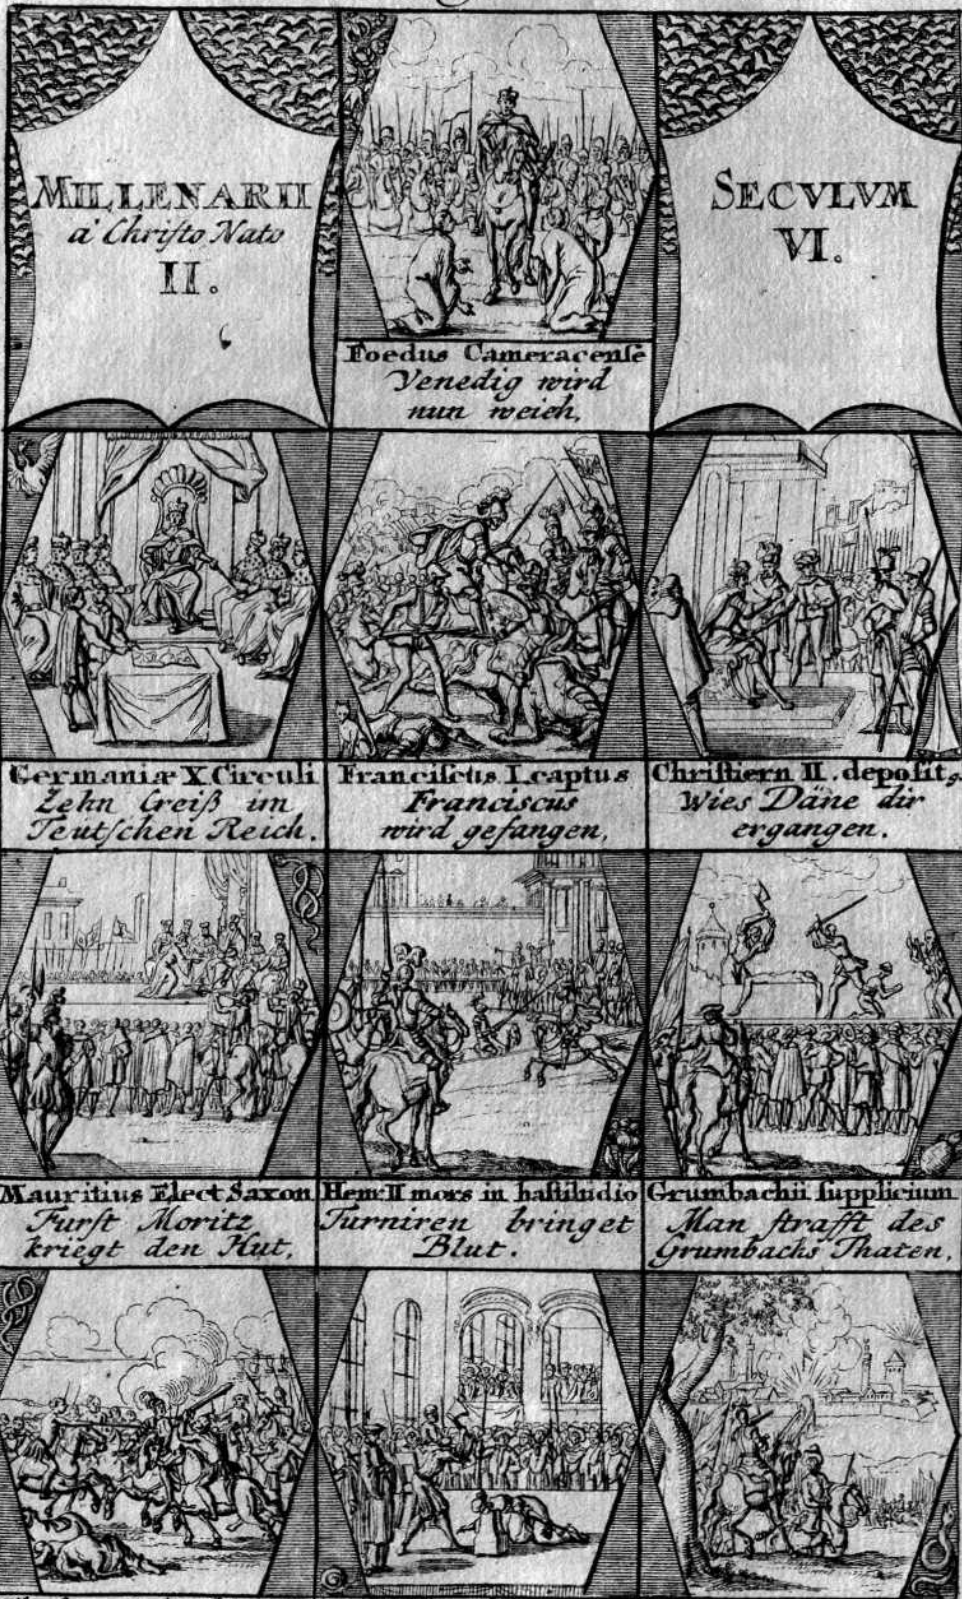 MILLENARII
a Chriſto Nato
II.
SECVLVM
VI.
Foedus Cameracenſe
Venedig wird
nun weich,
Germaniæ X Circuli
Zehn Creiß im
Teutſchen Reich.
Franciſcus I. captus
Franciscus
wird gefangen,
Chriſtiern II. depoſit9
Wies Däne dir
ergangen.
Mauritius Elect Saxon
Furſt Moritz
kriegt den Hut,
Henr II mors in haſtiludio
Turniren bringet
Blut.
Grumbachii ſupplicium
Man ſtrafft des
Grumbachs Thaten,